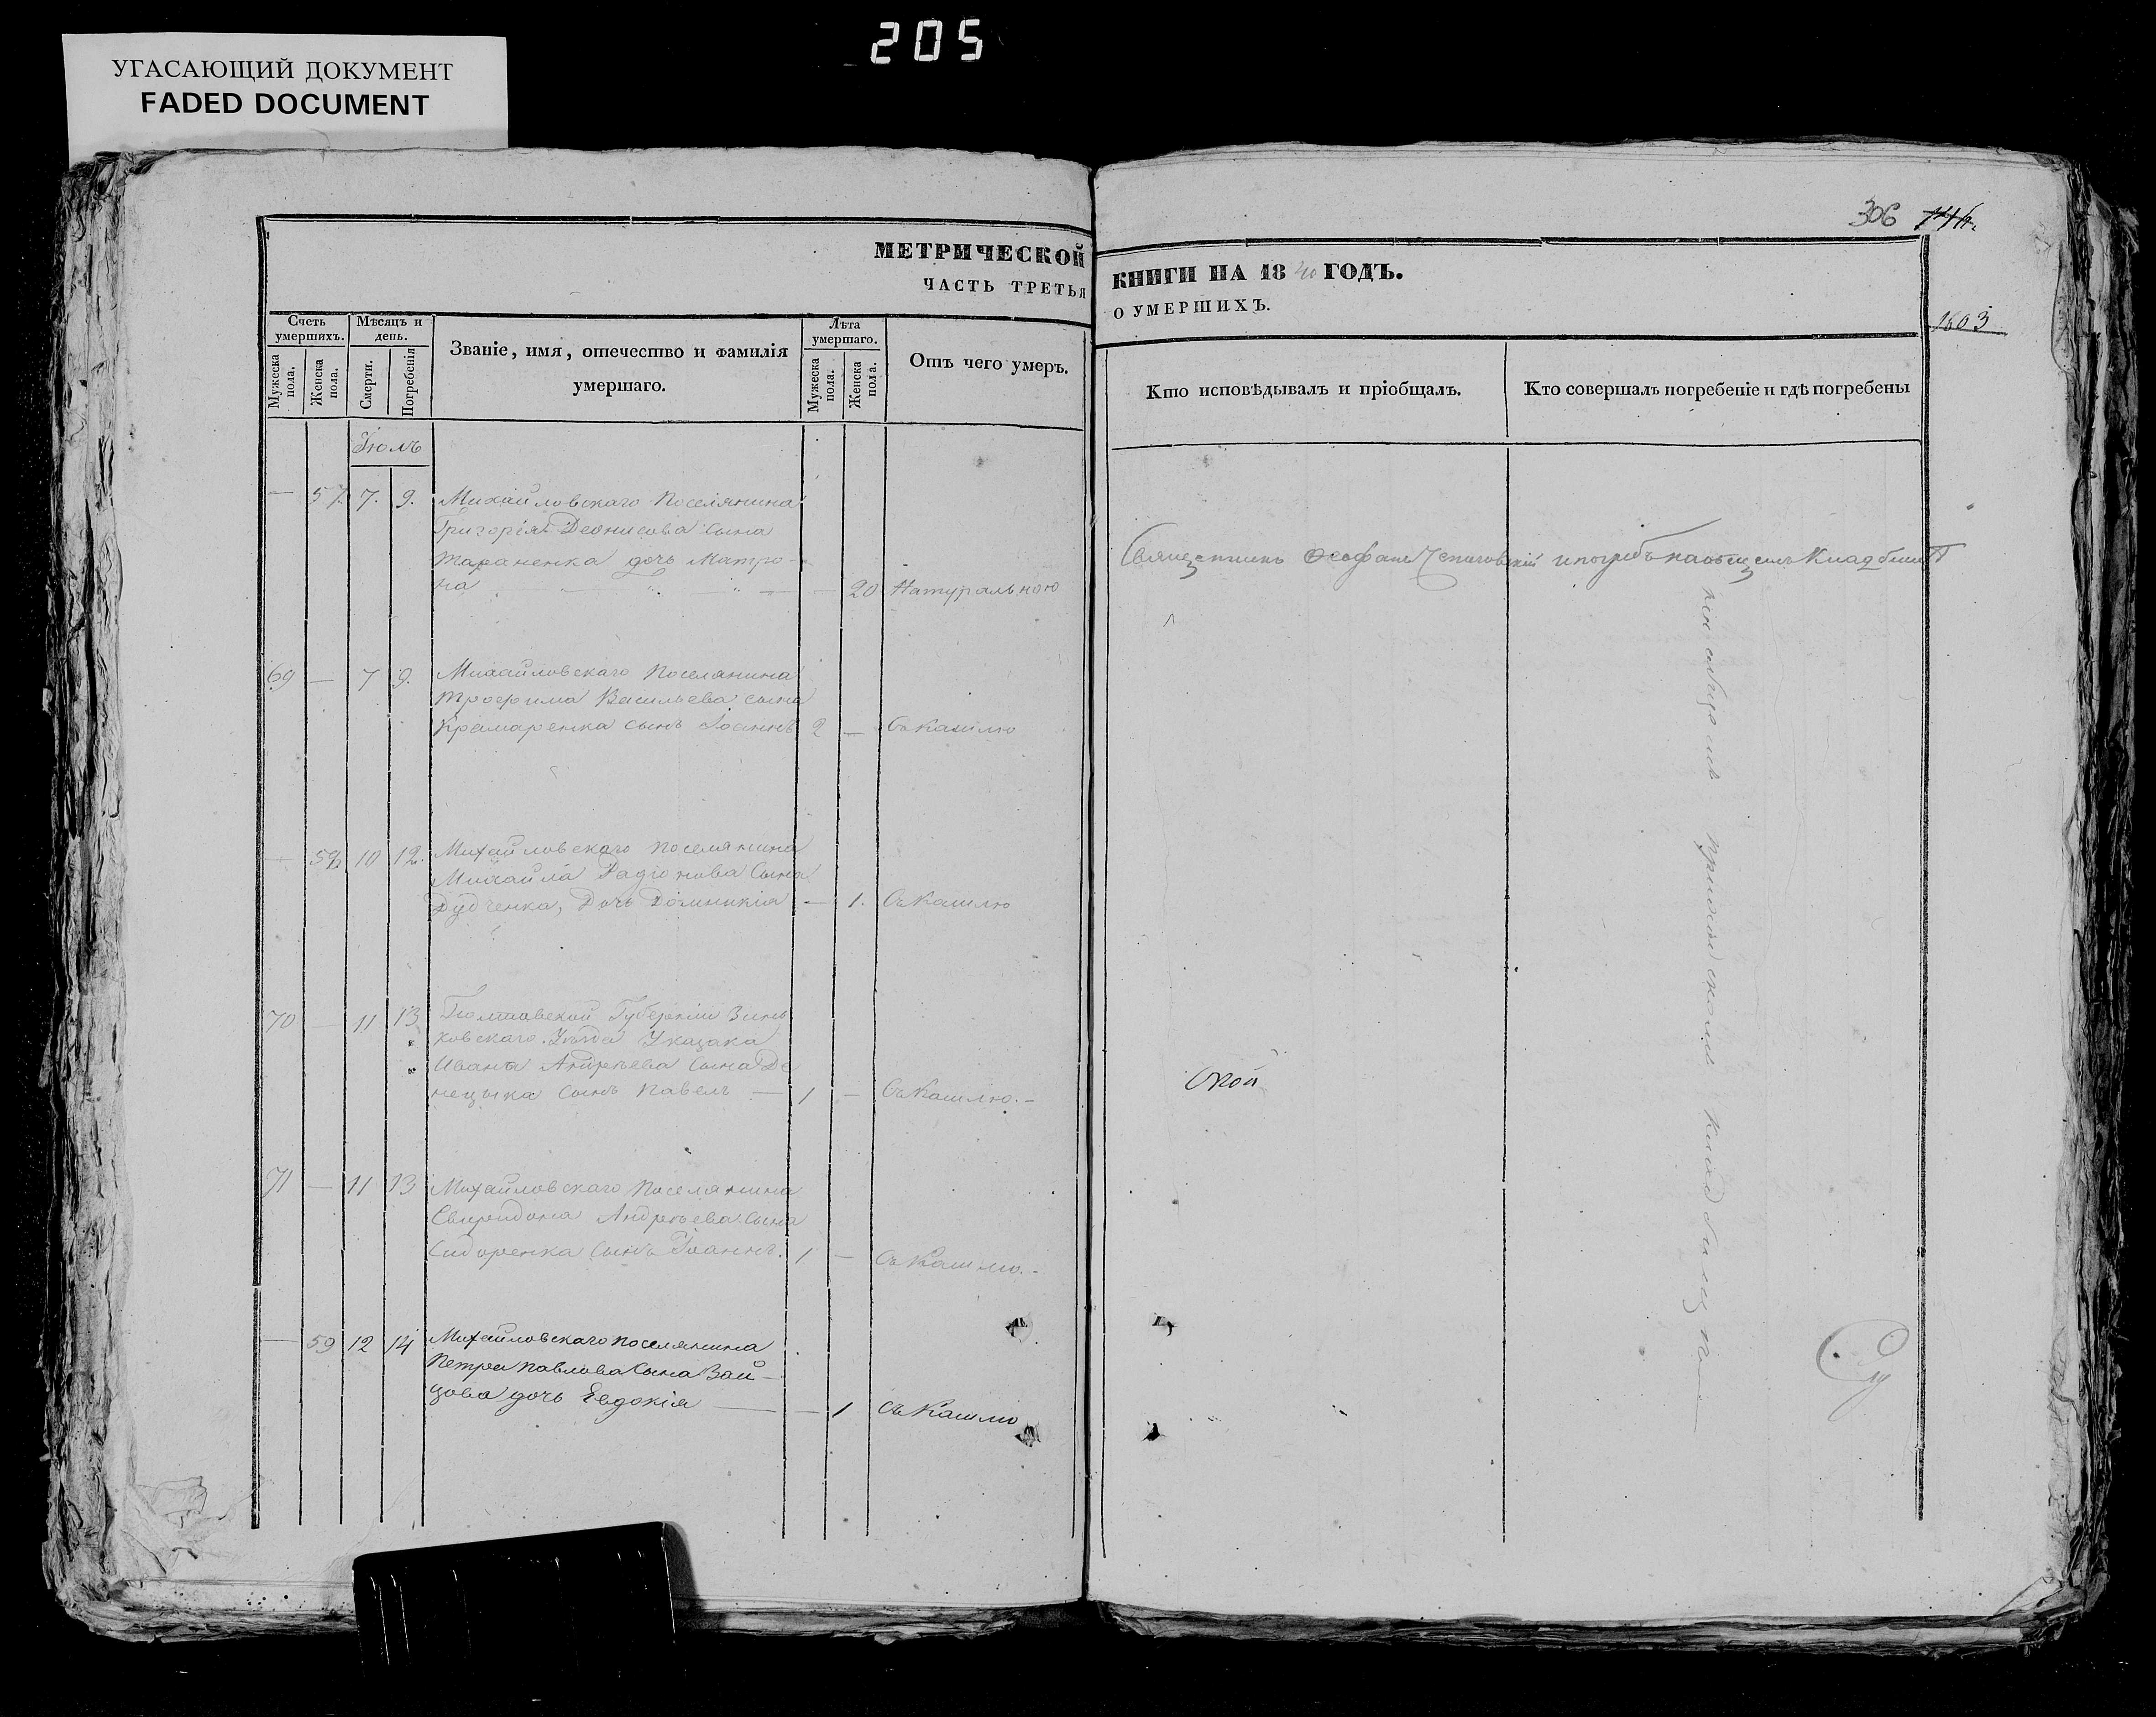 205
УГАСАЮЩИЙ ДОКУМЕНТ
FADED DOCUMENT
306 146.
МЕТРИЧЕСКОЙ КНИГИ НА 1840 ГОДЪ.
ЧАСТЬ ТРЕТЬЯ О УМЕРШИХЪ.
1603
Счетъ умершихъ.
Мужеска пола.
Женска пола.
Мѣсяцъ и день.
Смерти.
Погребенія
Званіе, имя, отечество и фамилія умершаго.
Лѣта умершаго.
Мужеска пола.
Женска пола.
Отъ чего умеръ.
Кто исповѣдывалъ и пріобщалъ.
Кто совершалъ погребеніе и гдѣ погребены
Іюль
— 57. 7. 9. Михайловскаго Поселянина
Григорія Деонисова сына
Тараненка дочь Матро-
на — 20 Натуральною
Священникъ Ѳеофанъ погребъ на общемъ Кладбищѣ
69 — 7 9. Михайловскаго Поселянина
Трофима Васильева сына
Крамаренка сынъ Іоаннъ 2 — Съ Кашлю
— 58 10 12. Михайловскаго поселянина
Михаила Радіонова Сына
Дудченка, Дочь Доминикія — 1. Съ Кашлю
70 — 11 13 Полтавской Губерніи Зинь
ковскаго Уѣзда Указака
Ивана Андреева сына Де
нещика сынъ Павелъ — 1 — Съ Кашлю.-
71 — 11 13 Михайловскаго Поселянина
Свиридона Андреева сына
Сидоренка Сынъ Іоаннъ. 1 — Съ Кашлю.-
— 59 12 14 Михайловскаго поселянина
Петра Павлова Сына Зай-
цова дочь Евдокія — 1 Съ Кашлю
общемъ приходскомъ кладбищѣ